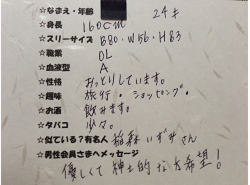 ☆なまえ・年齢 24才
☆身長 160cm
☆スリーサイズ B80・W56・H83
☆職業 OL
☆血液型 A
☆性格 おっとりしています。
☆趣味 旅行・ショッピング。
☆お酒 飲みます。
☆タバコ 少々。
☆似ている?有名人 稲森いずみさん
☆男性会員さまへメッセージ
優しくて紳士的な方希望!